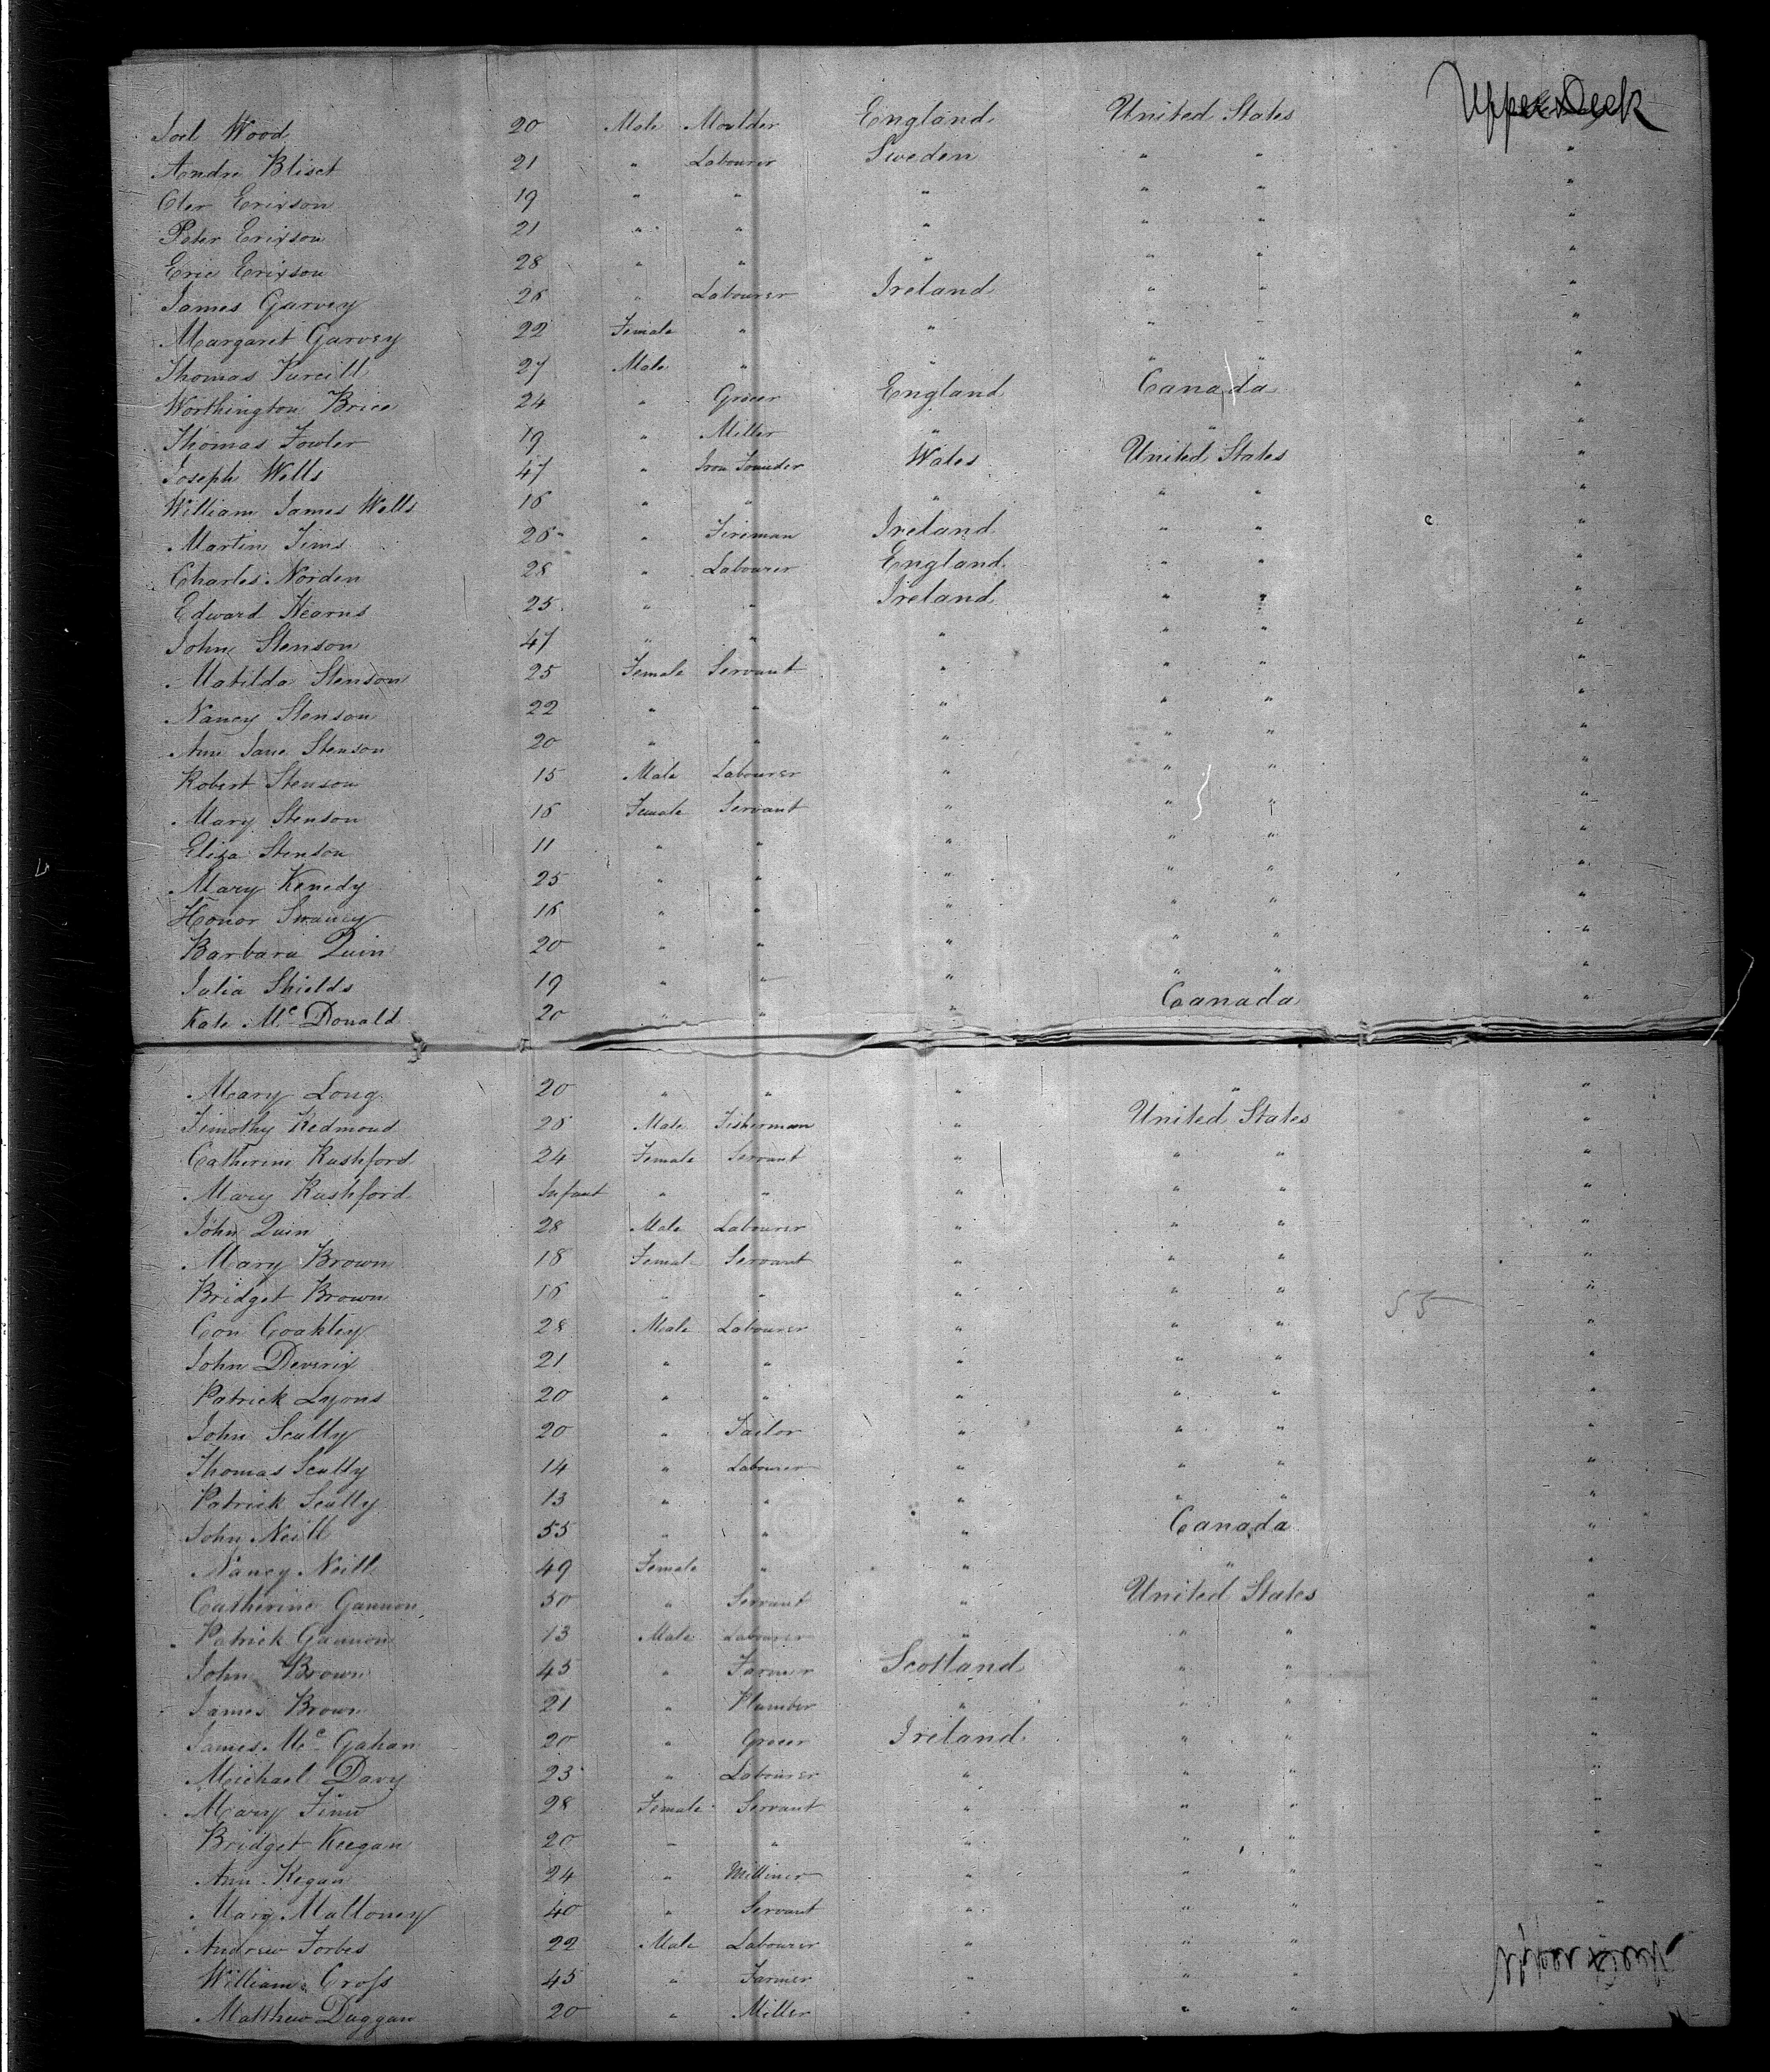 Joel Wood 20 Male Moulder England United States Upper Deck
Andre Bliset 21 " Labourer Sweden " " "
Oler Erixson 19 " " " " " "
Peter Erixson 21 " " " " " "
Eric Erixson 28 " " " " " "
James Garvey 26 " Labourer Ireland " " "
Margaret Garvey 22 Female " " " " "
Thomas Purcill 27 Male " " " " "
Worthington Brice 24 " Grocer England Canada "
Thomas Fowler 19 " Miller " " "
Joseph Wells 47 " Iron Founder Wales United States "
William James Wells 16 " " " " " "
Martin Tims 26 " Fireman Ireland " " "
Charles Norden 28 " Labourer England " " "
Edward Kearns 25 " " Ireland " " "
John Stenson 47 " " " " " "
Matilda Stenson 25 Female Servant " " " "
Nancy Stenson 22 " " " " " "
Ann Jane Stenson 20 " " " " " "
Robert Stenson 15 Male Labourer " " " "
Mary Stenson 16 Female Servant " " " "
Eliza Stenson 11 " " " " " "
Mary Kenedy 25 " " " " " "
Honor Swaney 16 " " " " " "
Barbara Quin 20 " " " " " "
Julia Shields 19 " " " " " "
Kate Mc Donald 20 " " " Canada "
Mary Long 20 " " " " "
Timothy Redmond 26 Male Fisherman " United States "
Catherine Rushford 24 Female Servant " " " "
Mary Rushford Infant " " " " " "
John Quin 28 Male Labourer " " " "
Mary Brown 18 Female Servant " " " "
Bridget Brown 16 " " " " " 55 "
Con Coakley 28 Male Labourer " " " "
John Deverix 21 " " " " " "
Patrick Lyons 20 " " " " " "
John Scully 20 " Tailor " " " "
Thomas Scully 14 " Labourer " " " "
Patrick Scully 13 " " " " " "
John Neill 55 " " " Canada "
Nancy Neill 49 Female " " " "
Catherine Gannon 50 " Servant " United States "
Patrick Gannon 13 Male Labourer " " " "
John Brown 45 " Farmer Scotland " " "
James Brown 21 " Plumber " " " "
James Mc Gahan 20 " Grocer Ireland " " "
Michael Davy 23 " Labourer " " " "
Mary Finn 28 Female Servant " " " "
Bridget Keegan 20 " " " " " "
Ann Kegan 24 " Milliner " " " "
Mary Malloney 40 " Servant " " " "
Andrew Forbes 22 Male Labourer " " " Upper Deck
William Cross 45 " Farmer " " "
Matthew Duggan 20 " Miller " " " "